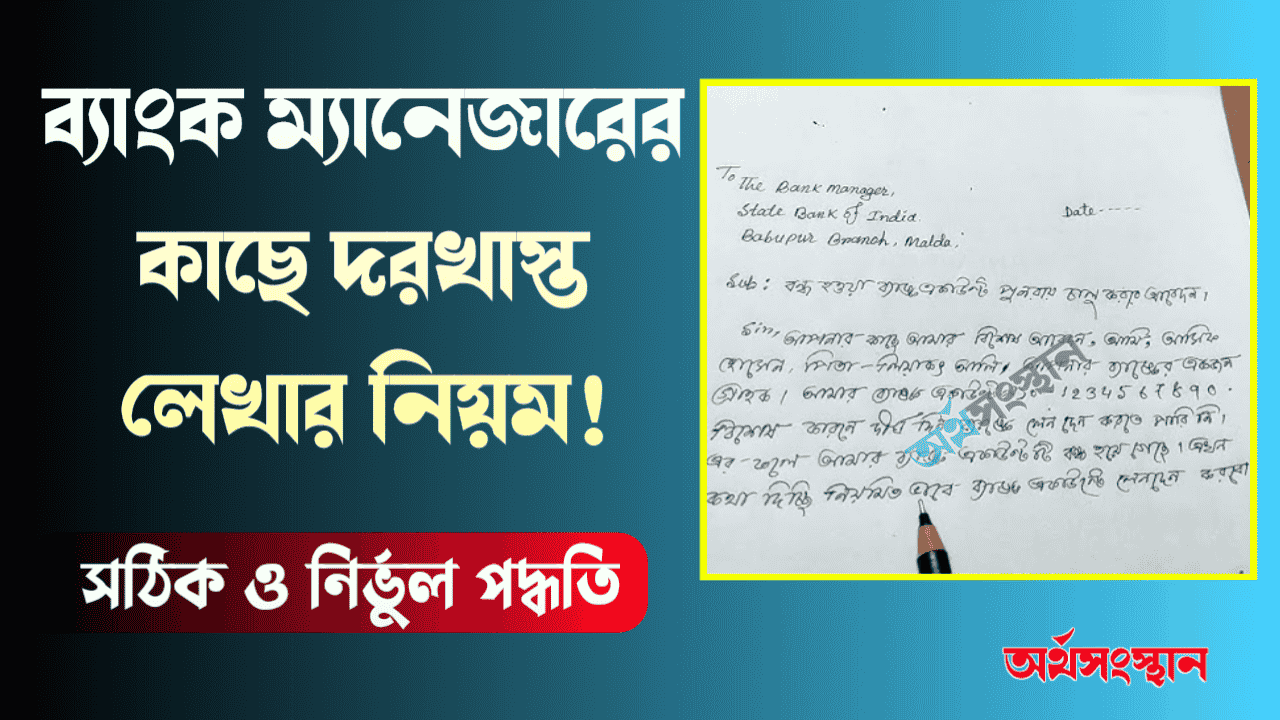 ব্যাংক ম্যানেজারের
কাছে দরখাস্ত
লেখার নিয়ম!
সঠিক ও নির্ভুল পদ্ধতি
To
The Bank manager,
State Bank of India.
Babupur Branch, Malda,
Date-----
Sub: বন্ধ হওয়া ব্যাঙ্ক একাউন্ট পুনরায় চালু করার আবেদন।
Sir, আপনার কাছে আমার বিশেষ আবেদন, আমি, আসিফ
হোসেন, পিতা - লিয়াকৎ আলি, ব্যাঙ্কের একজন
গ্রাহক। আমার ব্যাঙ্ক একাউন্ট 1234567890.
বিশেষ কারনে দীর্ঘ দিন লেন দেন করতে পারি নি।
এর ফলে আমার ব্যাঙ্ক একাউন্ট টি বন্ধ হয়ে গেছে। এখন
কথা দিচ্ছি নিয়মিত ভাবে ব্যাঙ্ক একাউন্টে লেনদেন করবো
অর্থসংস্থান
অর্থসংস্থান